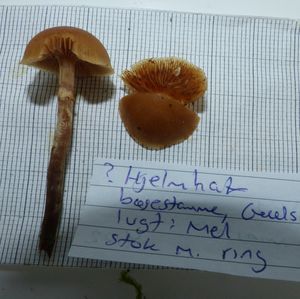 ? Hjelmhat
bøgestamme, Geels
lugt: Mel
stok m. ring